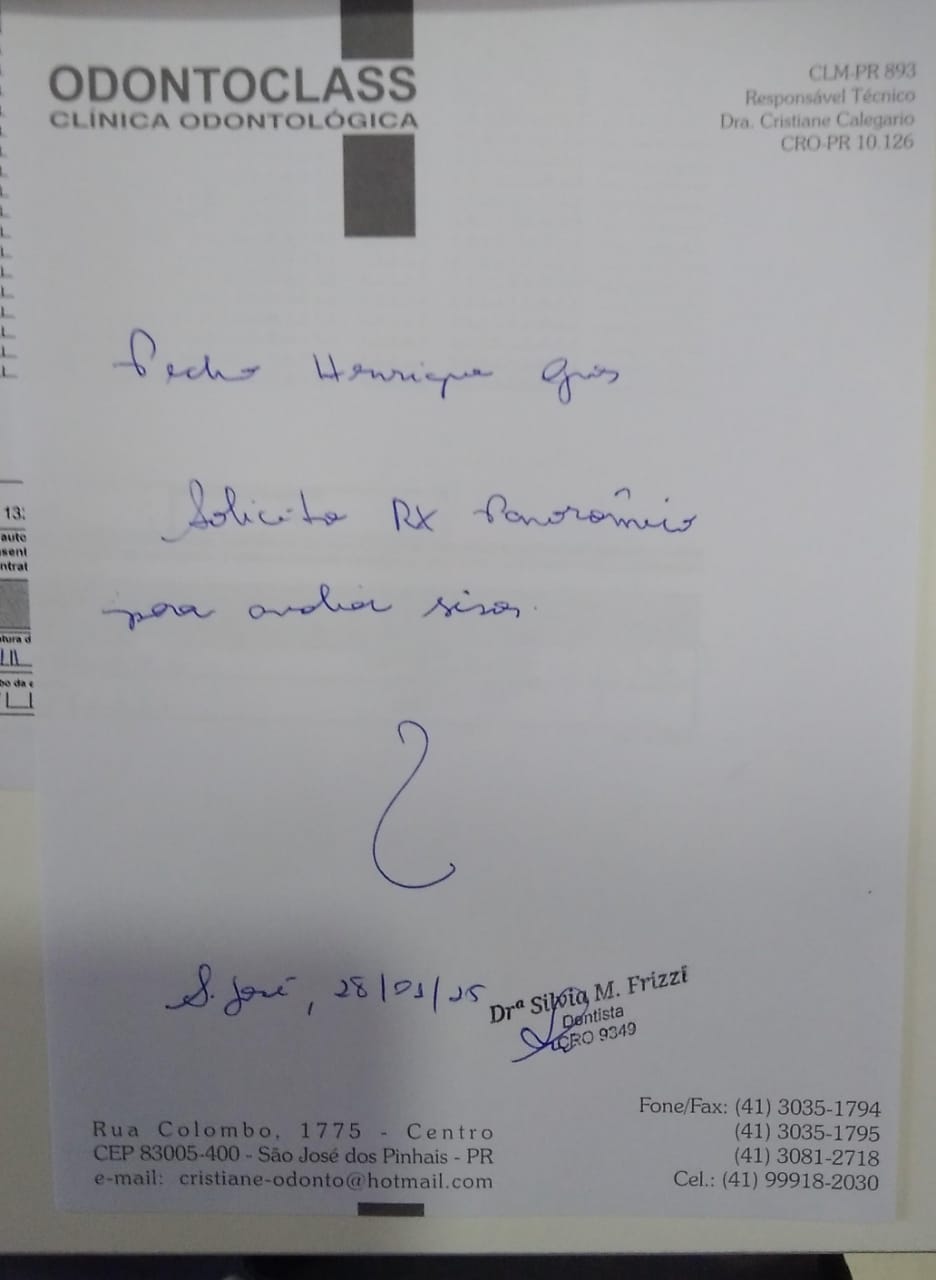 ODONTOCLASS
CLÍNICA ODONTOLÓGICA
CLM-PR 893
Responsável Técnico
Dra. Cristiane Calegario
CRO-PR 10.126
Pedro Henrique
Solicito RX Panorâmico
para avaliar sisos.
S. José, 28/01/25
Drª Silvia M. Frizzi
Dentista
CRO 9349
Rua Colombo, 1775 - Centro
CEP 83005-400 - São José dos Pinhais - PR
e-mail: cristiane-odonto@hotmail.com
Fone/Fax: (41) 3035-1794
(41) 3035-1795
(41) 3081-2718
Cel.: (41) 99918-2030
13: